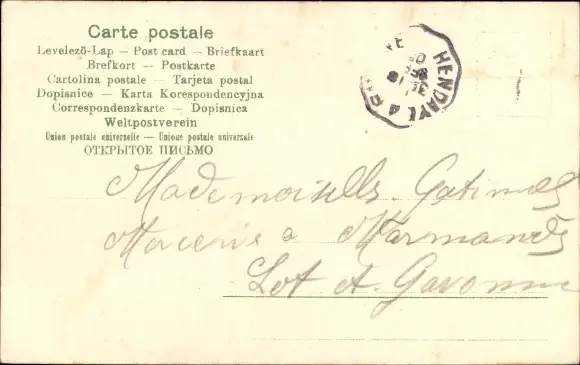 Carte postale
Levelező-Lap — Post card — Briefkaart
Brefkort — Postkarte
Cartolina postale — Tarjeta postal
Dopisnice — Karta Korespondencyjna
Correspondenzkarte — Dopisnica
Weltpostverein
Union postale universelle — Unione postale universale
ОТКРЫТОЕ ПИСЬМО
HENDAYE A
Mademoiselle
a Marmande
Lot et Garonne